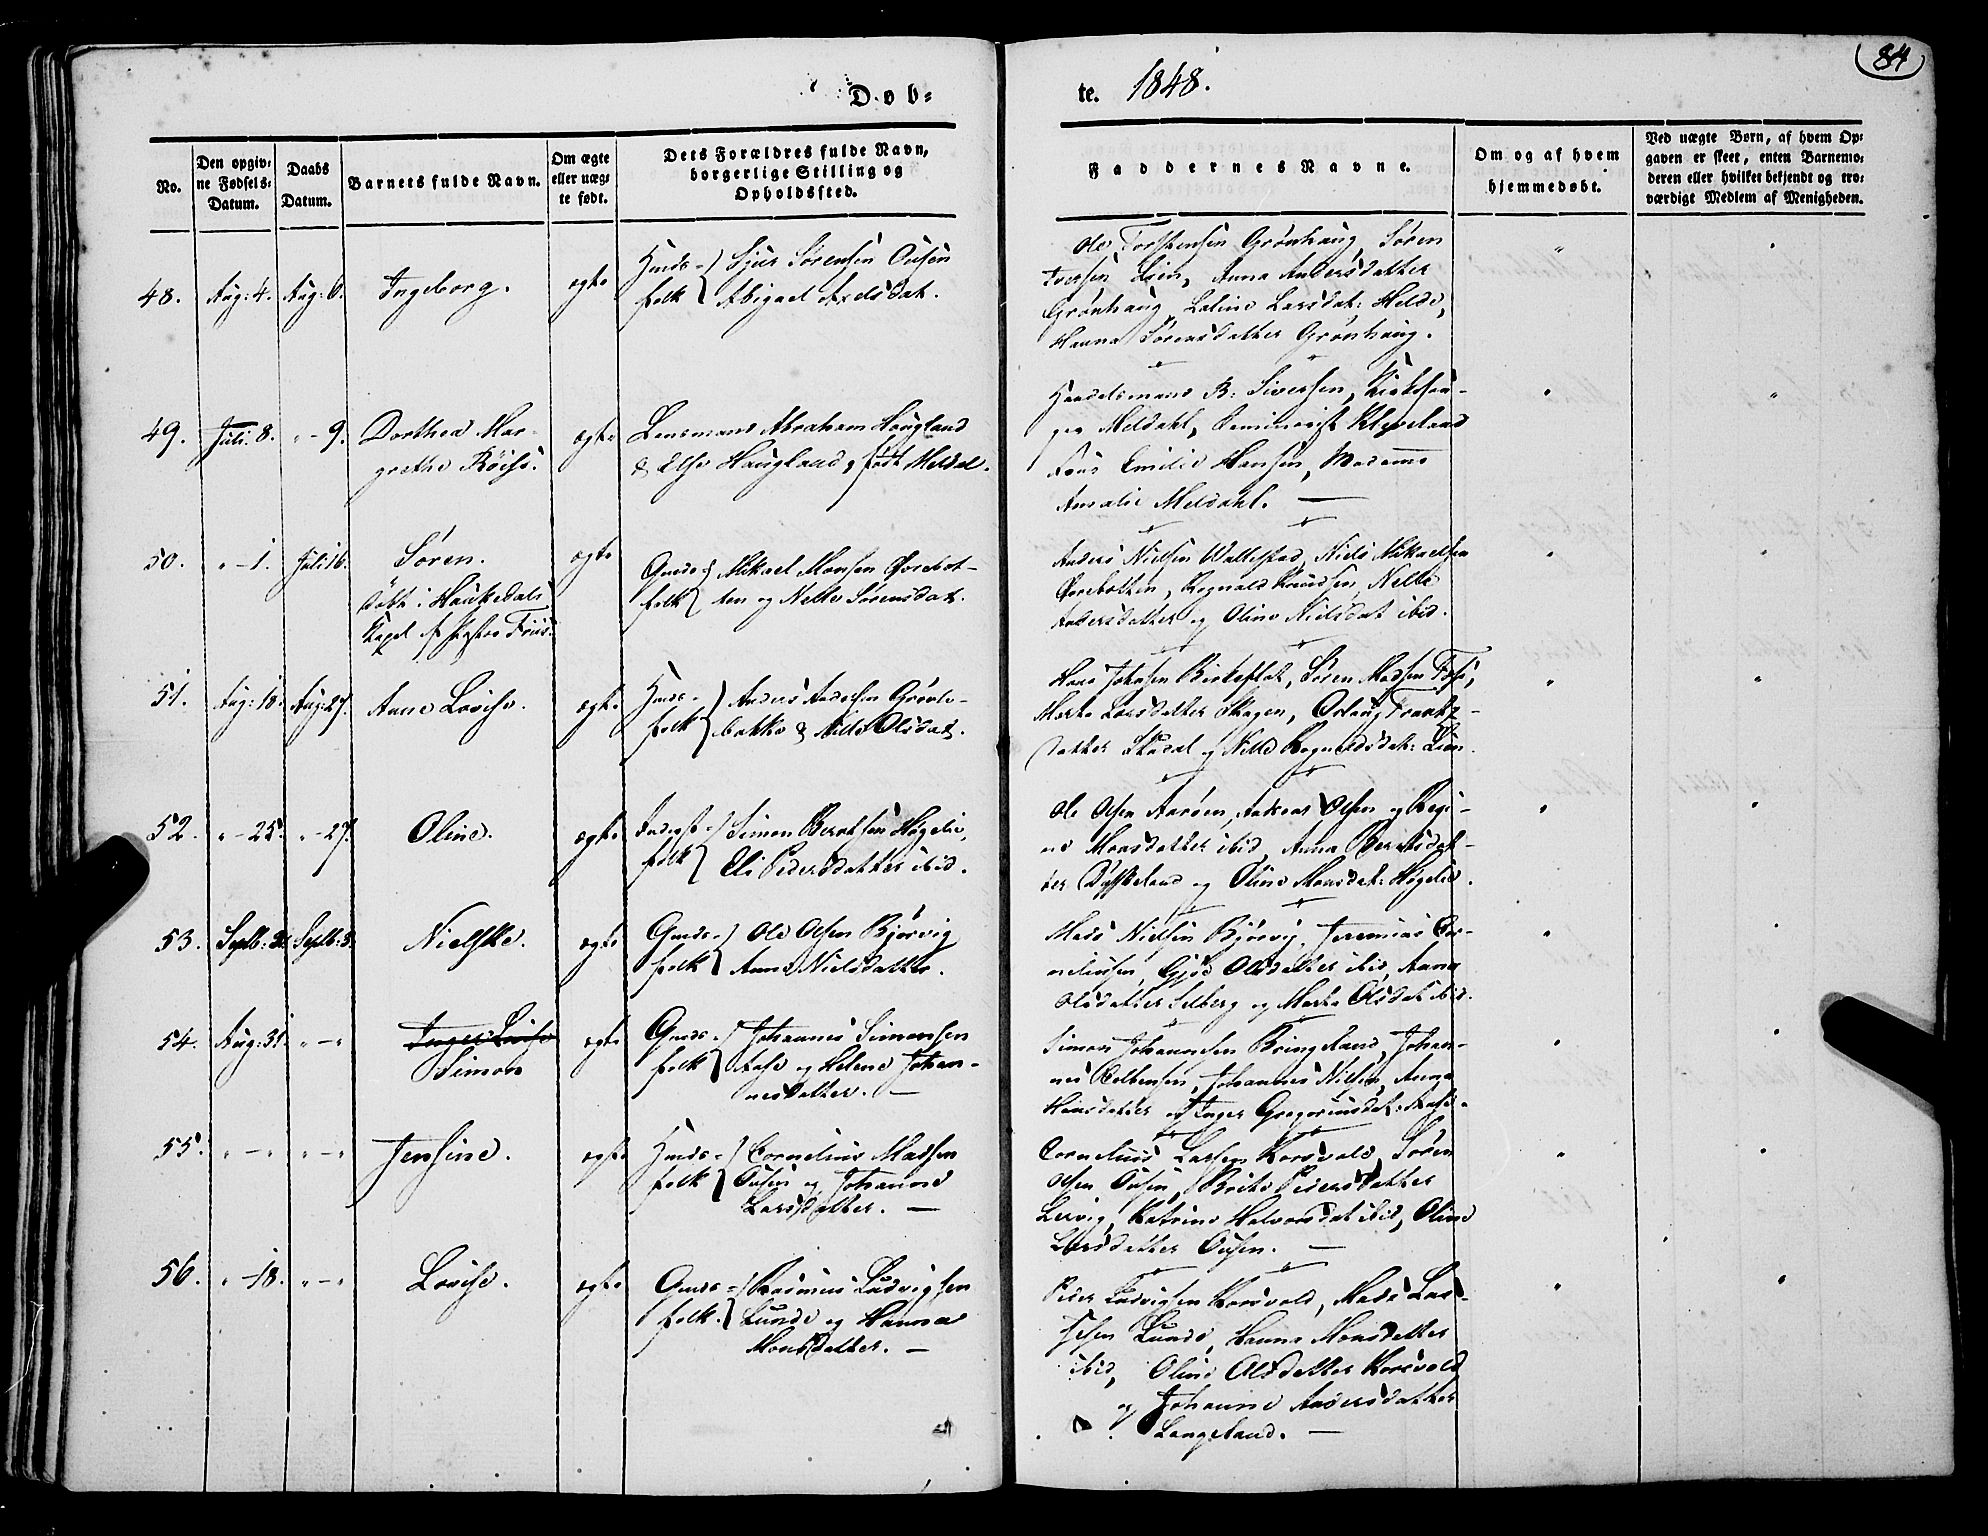 84
Døb-
te. 1848.
No.
Den opgiv-
ne Fødsels-
Datum.
Daabs
Datum.
Barnets fulde Navn.
Om ægte
eller uæg-
te født.
Dets Forældres fulde Navn,
borgerlige Stilling og
Opholdssted.
Faddernes Navne.
Om og af hvem
hjemmedøbt.
Ved uægte Børn, af hvem Op-
gaven er skeet, enten Barnemo-
deren eller hvilket bekjendt og tro-
værdigt Medlem af Menigheden.
48. Aug: 4. Aug: 6. Ingeborg. ægte
Huus- Sjur Sørensen Ousen
folk Abigael Axelsdat.
Ole Torstensen Grønhaug, Søren
Iversen Lien, Anna Andersdatter
Grønhaug, Larsdat: Helde,
Hanna Sørensdatter Grønhaug.
49. Juli: 8. " - 9. Dorthea Mar-
grethe ægte
Lensmand Abraham Hougland
& Else Haugland, født Meldal.
Handelsmand B: Sivertsen, Kirkesan-
ger Meldahl, Seminarist Klepeland
Emilie Hansen, Madame
Amalie Meldahl. —
50. " - 1. Juli 16. Søren. ægte
Døbt i Haukedals
Kapel af Pastor Friis.
Gaards- Mikael Monsen
folk ten og Nille Sørensdat.
Anders Nielsen Wallestad, Niels Mikaelsen
Rognald Knudsen, Nille
Andersdatter og Oline Nielsdat ibid.
51. Aug: 18. Aug: 27. Anne Lovise. ægte
Huus- Anders Andersen Grøvle-
folk bakke & Nille Olsdat.
Hans Johnsen Birkeflot, Søren Madsen
Marta Larsdatter Skagen,
datter Skadal og Nille Rognaldsdat: Lien.
52. " - 25. " - 27. Oline. ægte
Inderst- Simon Berntsen Høgelie,
folk Eli Pedersdatter ibid.
Ole Olsen Aarøen, Olsen og Regi-
ne Monsdatter ibid, Anna Berntsdat-
ter og Oline Monsdat: Høgelie.
53. Septb: 2. Septb: 3. Nielske. ægte
Gaards- Ole Olsen Bjørvig
folk Anna Nielsdatter.
Mads Nielsen Bjørvig, Jeremias Cor-
neliusen, Olsdatter ibid, Anna
Olsdatter Solberg og Marta Olsdat ibid.
54. Aug: 31. " - " Inger Lovise
Simon ægte
Gaards- Johannes Simonsen
folk Aase og Helene Johan-
nesdatter. —
Simon Johannesen Bringeland, Johan-
nes Johannes Nilsen, Anna
Hansdatter og Inger Gregoriusdat: Aase.
55. " - " " - " Jensine. ægte
Huus- Cornelius Madsen
folk Ousen og Johanne
Larsdatter. —
Cornelius Larsen Korsvold, Søren
Olsen Ousen, Brite Pedersdatter
Lervig, Katrine Halvorsdat ibid, Oline
Larsdatter Ousen. —
56. " - 18. " - " Lovise. ægte
Gaards- Rasmus Ludvigsen
folk. Lunde og Hanna
Monsdatter. —
Peder Ludvigsen Korsvold, Mads
Lunde, Hanna Monsdatter
ibid, Oline Olsdatter Korsvold
og Johanne Andersdatter
Langeland. —